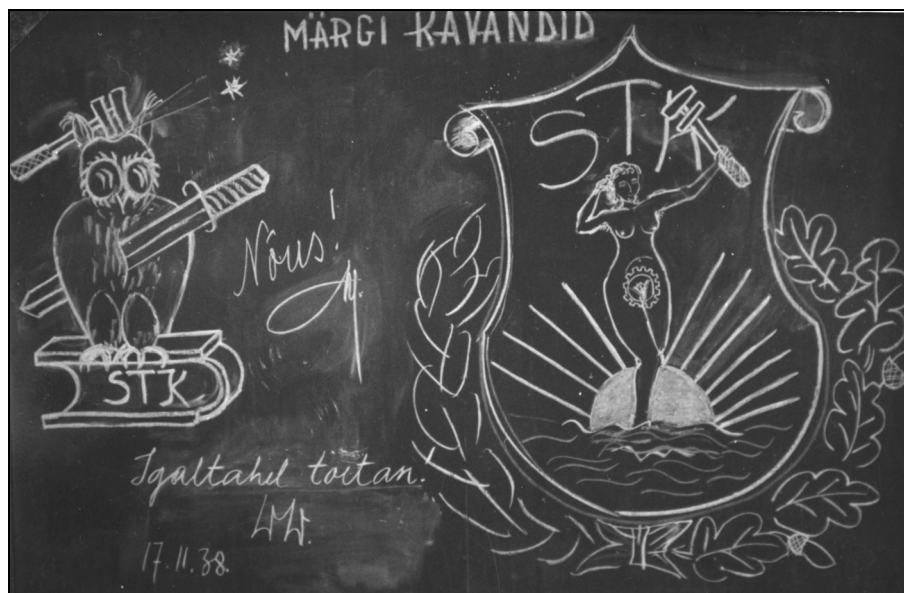 MÄRGI KAVANDID
STK
Nõus!
STK
Igaltahel toetan!
17.11.38.